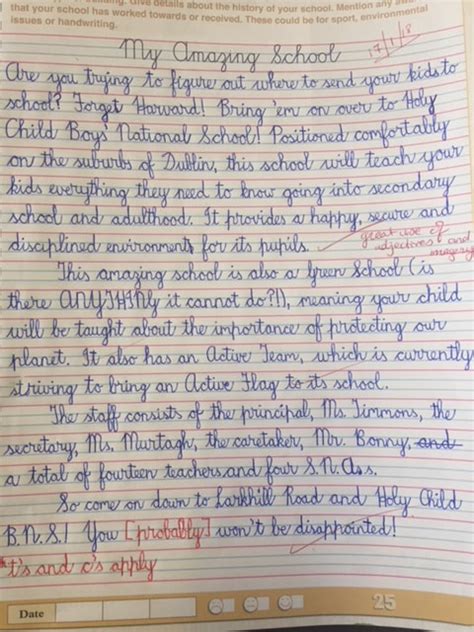 Give details about the history of your school. Mention any
that your school has worked towards or received. These could be for sport, environmental
issues or handwriting.
My Amazing School
17/1/18
Are you trying to figure out where to send your kids to
school? Forget Harvard! Bring 'em on over to Holy
Child Boys' National School! Positioned comfortably
on the suburbs of Dublin, this school will teach your
kids everything they need to know going into secondary
school and adulthood. It provides a happy, secure and
disciplined environment for its pupils.
great use of
adjectives and
imagery
This amazing school is also a Green School (is
there ANYTHING it cannot do?!), meaning your child
will be taught about the importance of protecting our
planet. It also has an Active Team, which is currently
striving to bring an Active Flag to its school.
The staff consists of the principal, Ms. Timmons, the
secretary, Ms. Murtagh, the caretaker, Mr. Bonny, and
a total of fourteen teachers and four S.N.As.
So come on down to Larkhill Road and Holy Child
B.N.S! You [probably] won't be disappointed!
*t's and c's apply
Date
25